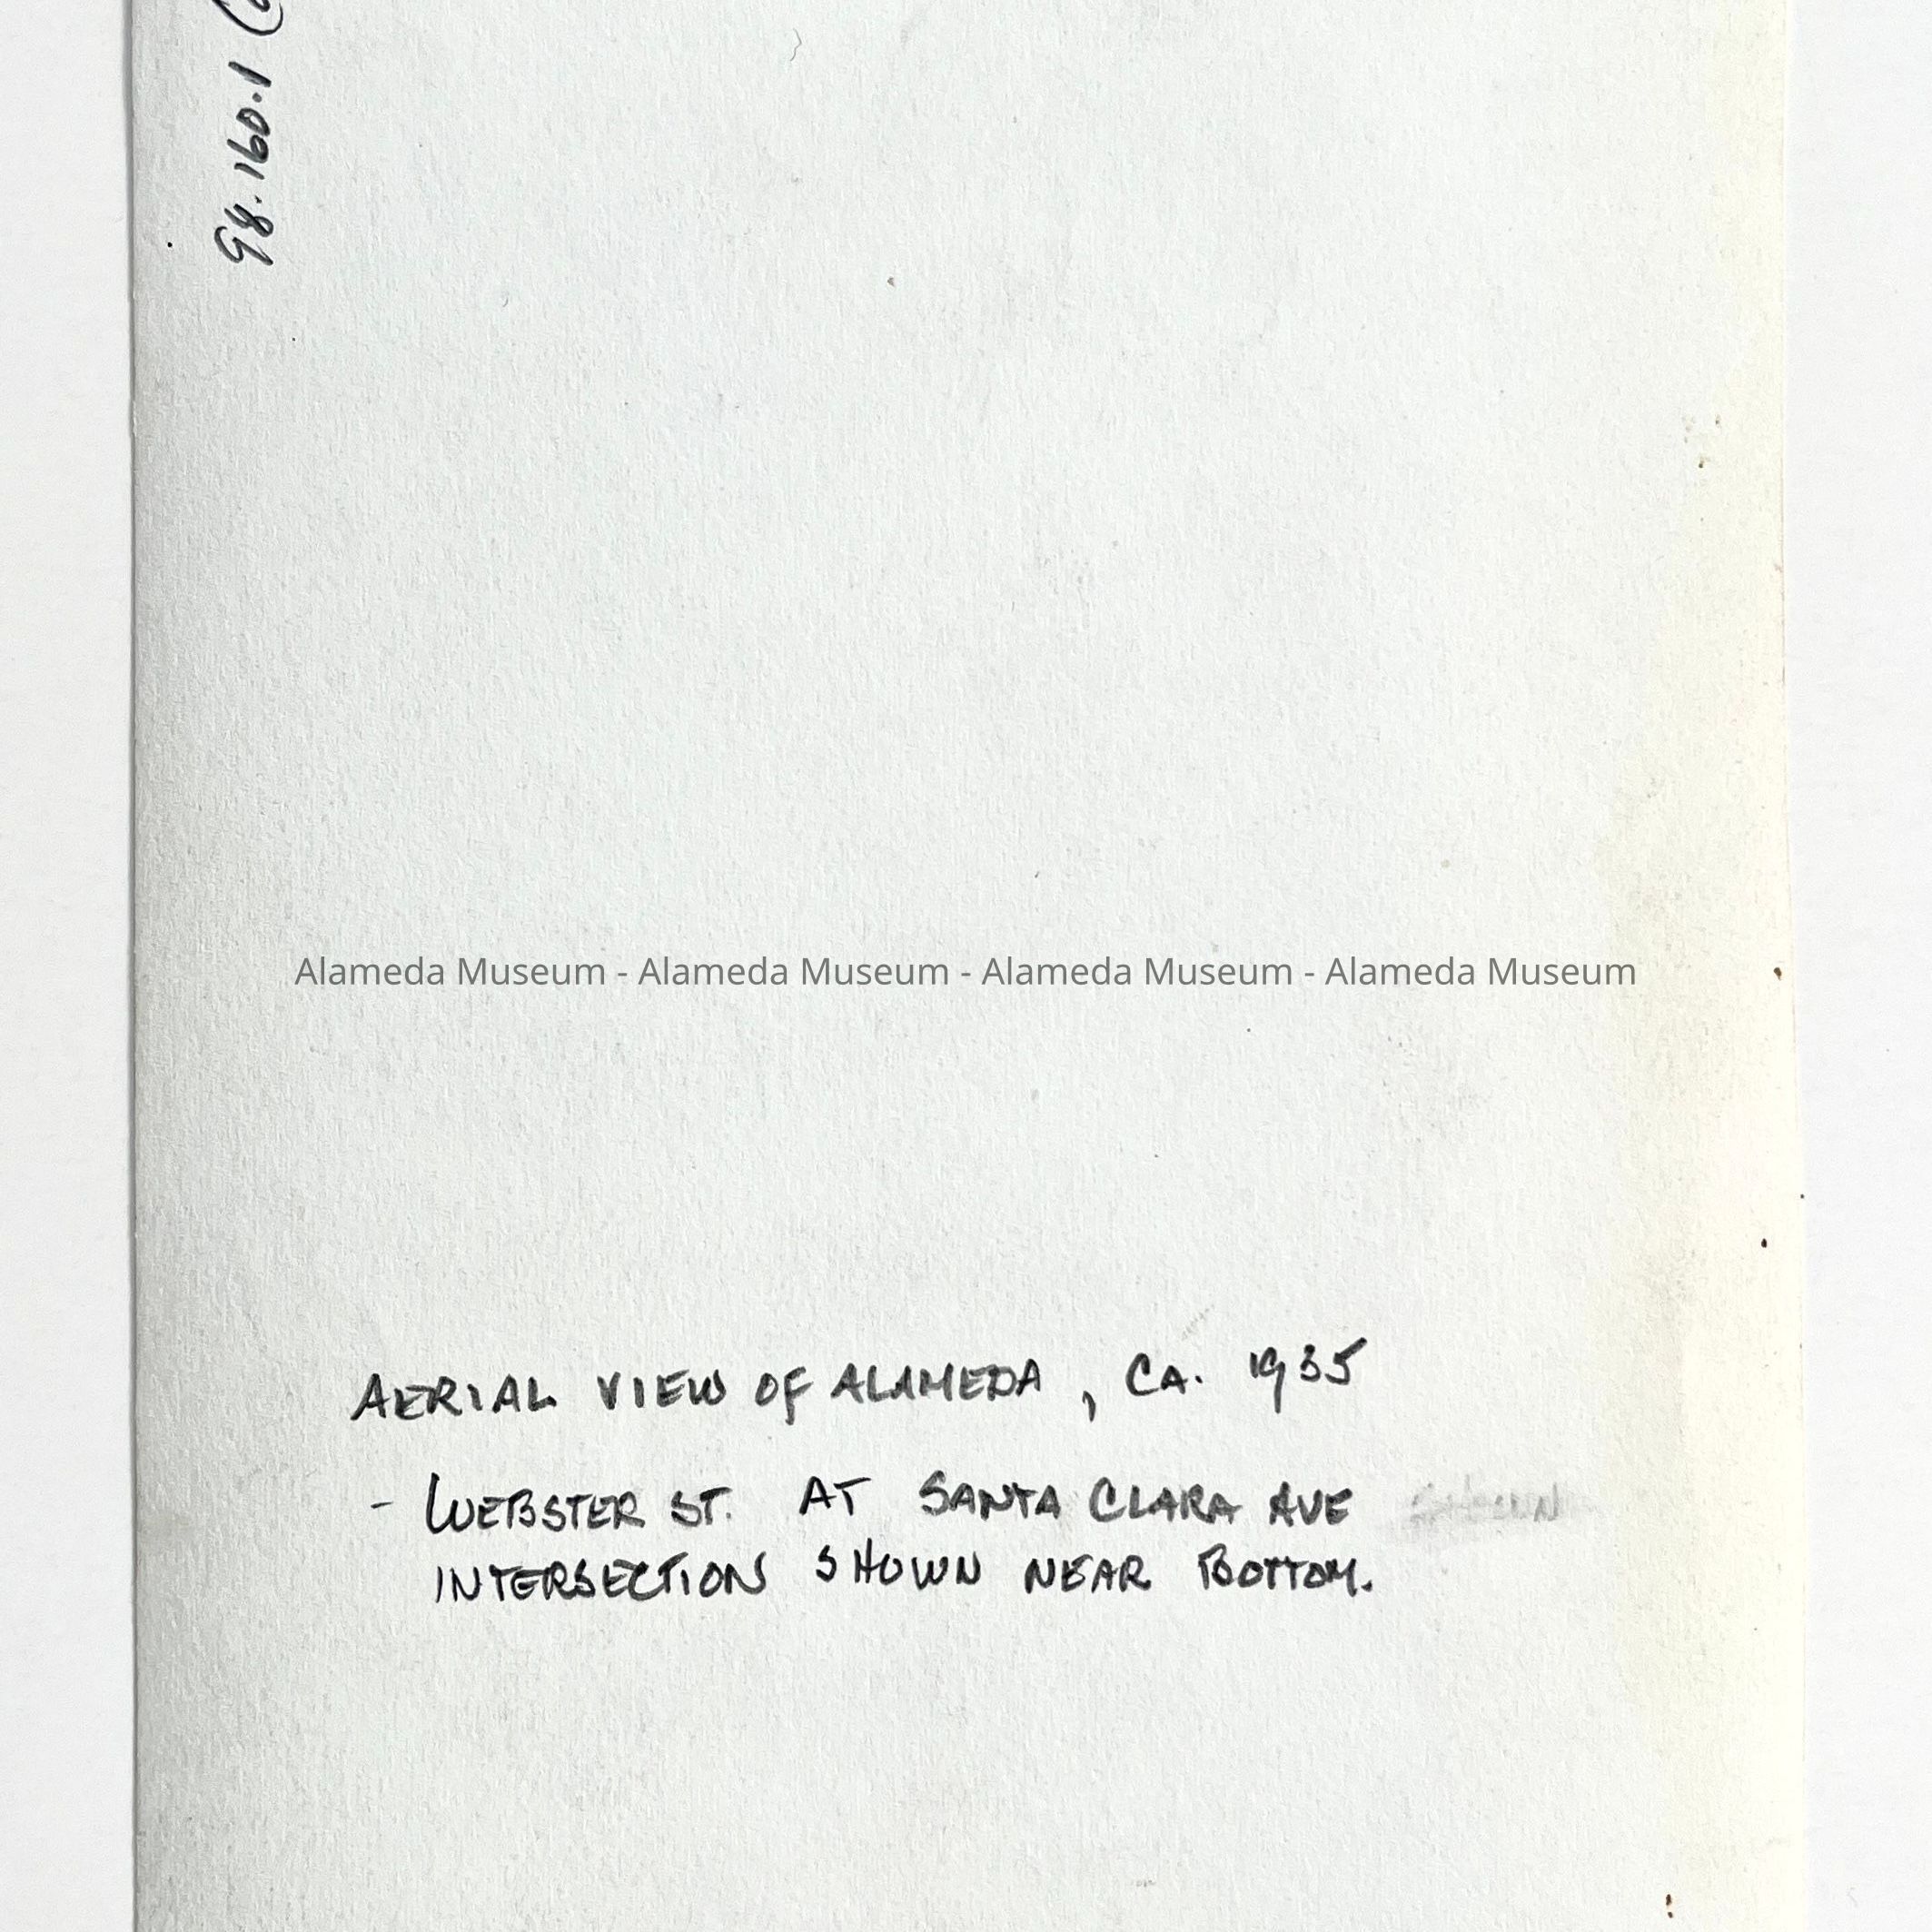 98.160.1
Alameda Museum - Alameda Museum - Alameda Museum - Alameda Museum
AERIAL VIEW OF ALAMEDA, CA. 1935
- WEBSTER ST. AT SANTA CLARA AVE
INTERSECTION SHOWN NEAR BOTTOM.